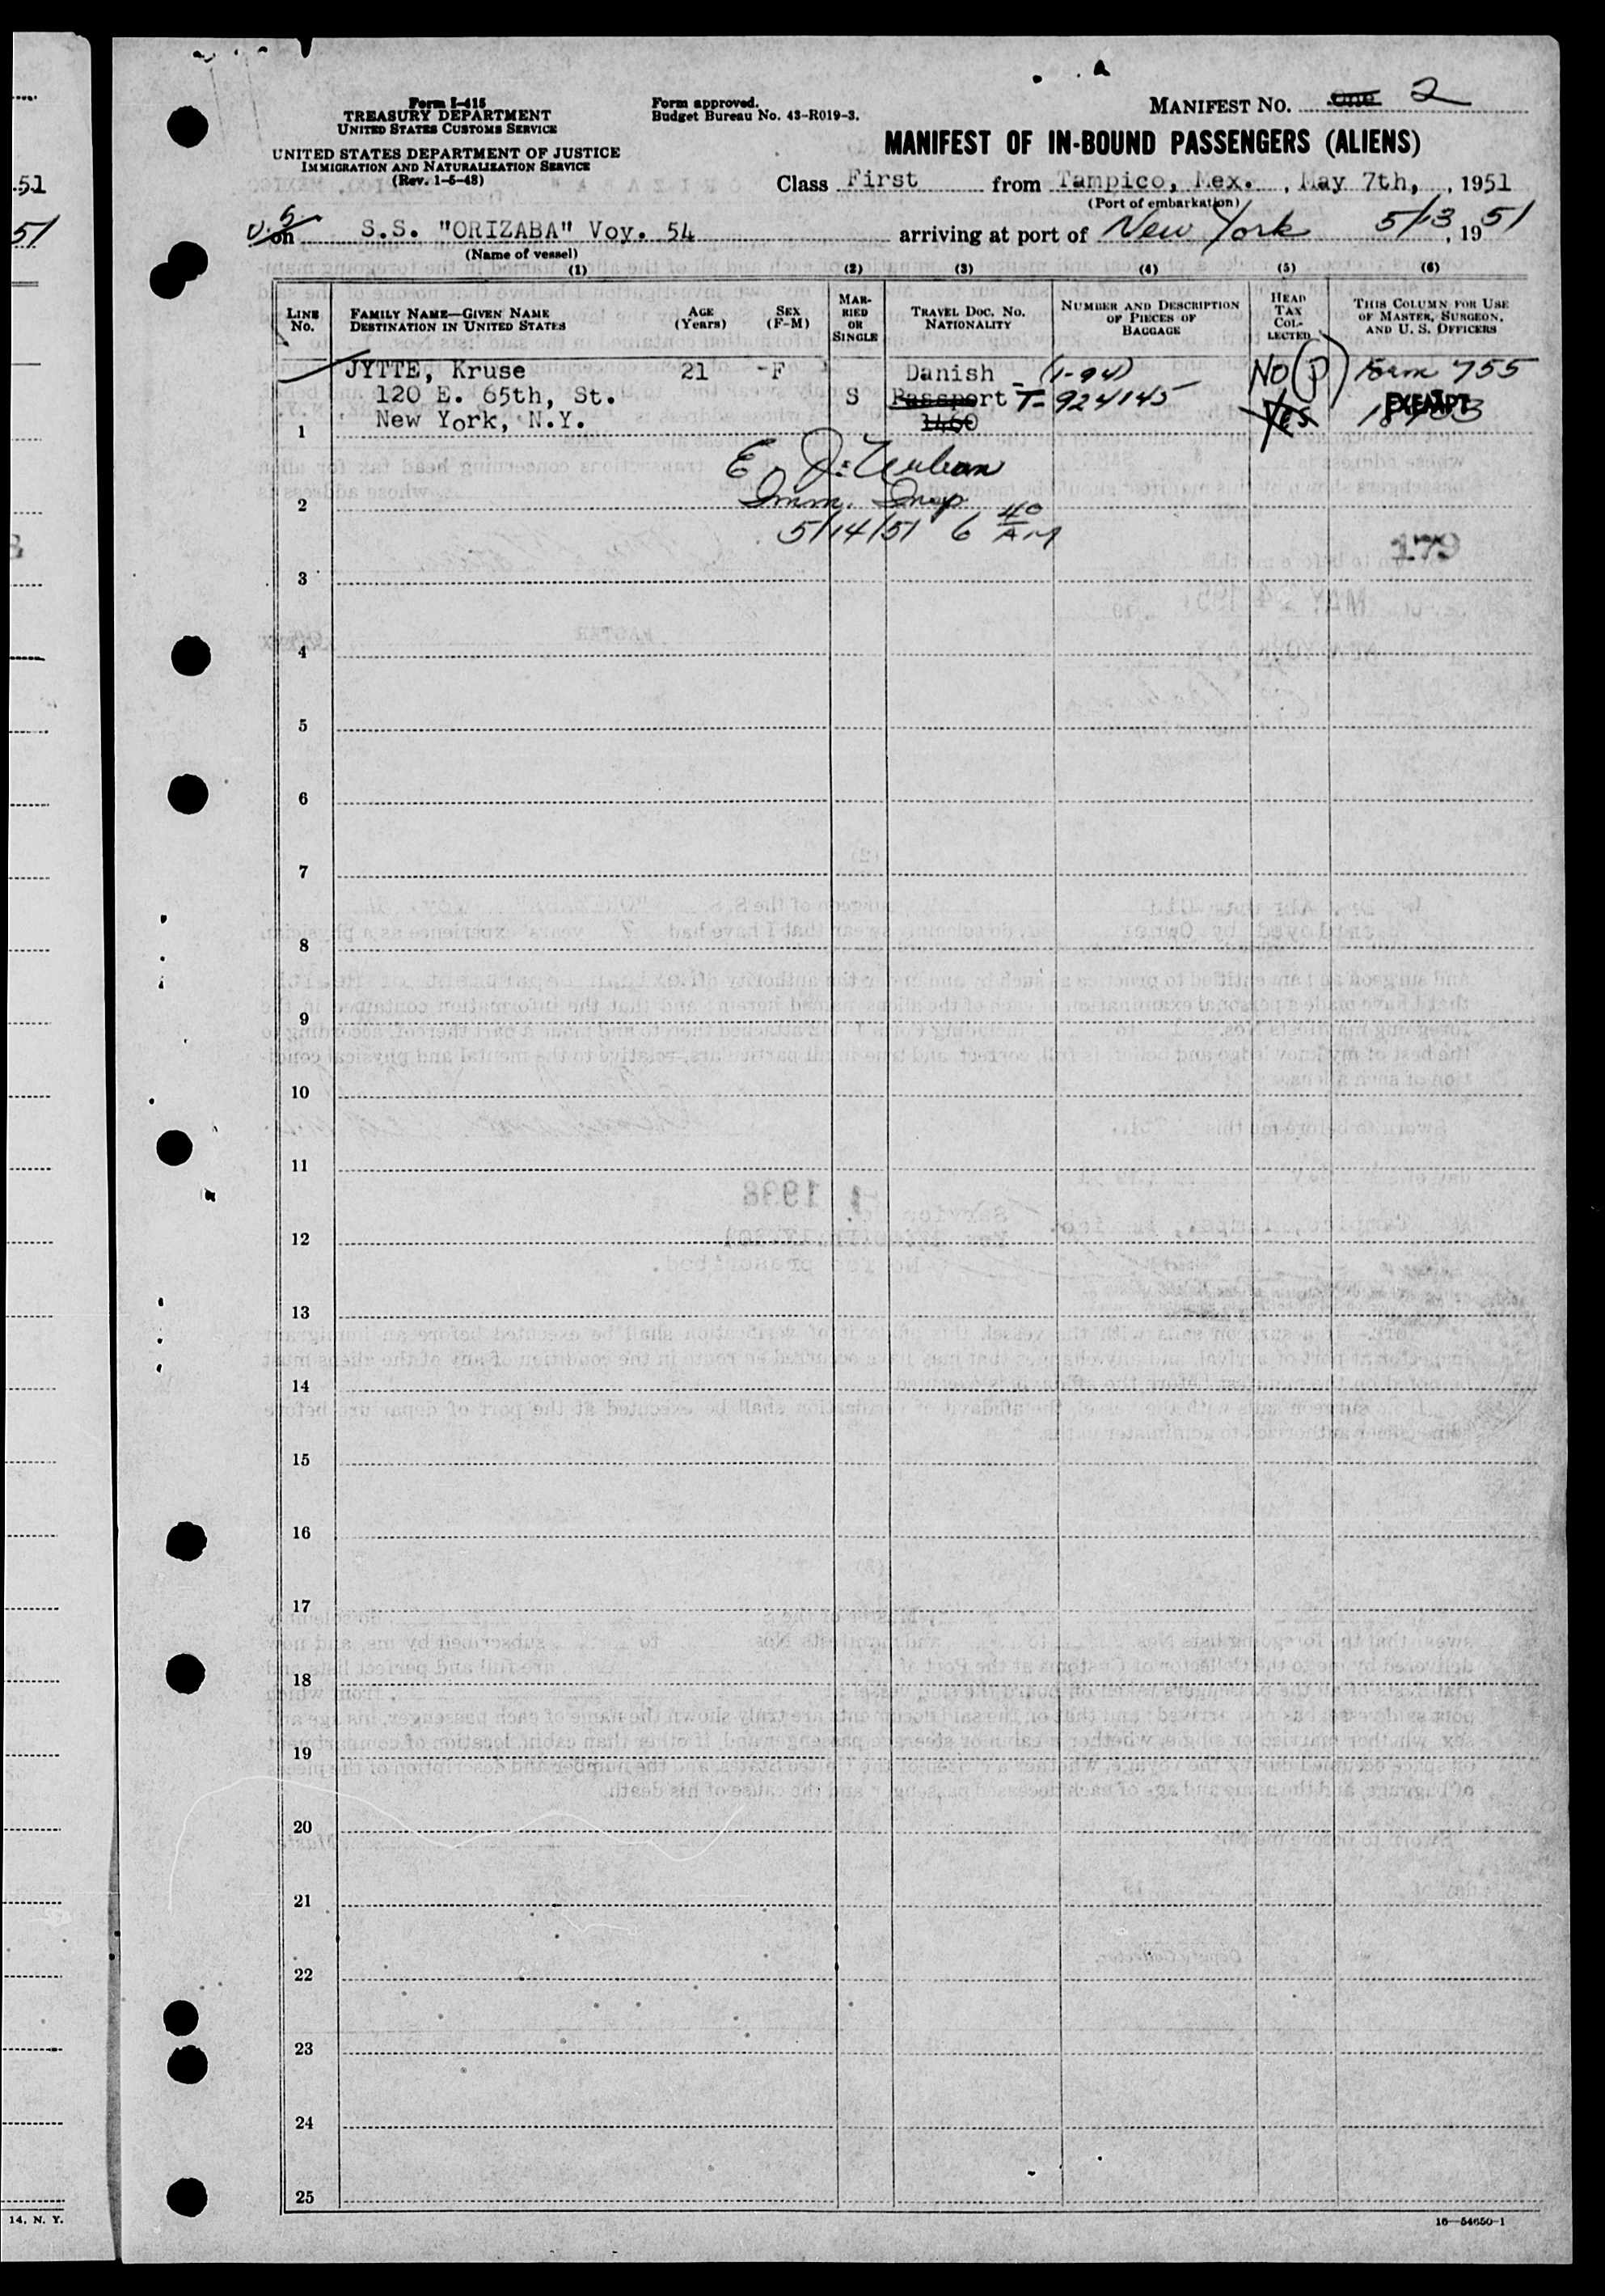 .51
51
14, N. Y.
Form I-415
TREASURY DEPARTMENT
UNITED STATES CUSTOMS SERVICE
UNITED STATES DEPARTMENT OF JUSTICE
IMMIGRATION AND NATURALIZATION SERVICE
(Rev. 1-5-48)
Form approved.
Budget Bureau No. 43-R019-3.
MANIFEST NO. One 2
MANIFEST OF IN-BOUND PASSENGERS (ALIENS)
Class First from Tampico, Mex. , May 7th, , 1951
(Port of embarkation)
on S.S. "ORIZABA" Voy. 54 arriving at port of New York 5/13, 1951
(Name of vessel)
(1) (2) (3) (4) (5) (6)
LINE No. FAMILY NAME—GIVEN NAME DESTINATION IN UNITED STATES AGE (Years) SEX (F-M) MARRIED OR SINGLE TRAVEL DOC. NO. NATIONALITY NUMBER AND DESCRIPTION OF PIECES OF BAGGAGE HEAD TAX COLLECTED THIS COLUMN FOR USE OF MASTER, SURGEON, AND U. S. OFFICERS
JYTTE, Kruse 21 -F Danish - (1-94) NO (P) Form 755
120 E. 65th, St. S Passport T-924145 YES EXEMPT
1 New York, N.Y. 1460
E
2 Imm. Insp
5/14/51 6 40 AM
179
3
4
5
6
7
8
9
10
11
12
13
14
15
16
17
18
19
20
21
22
23
24
25
16—54650-1